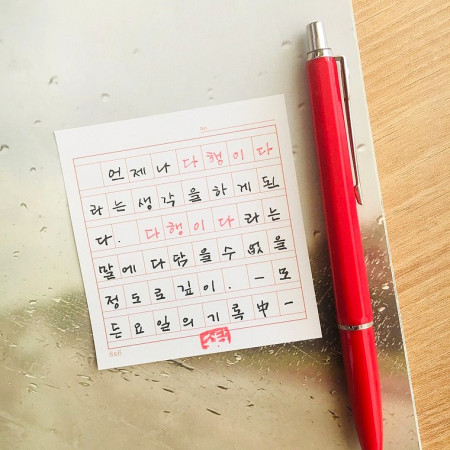 언제나 다행이다
라는 생각을 하게 되
다. 다행이다라는
말에 다 담을 수 없을
정도로 깊이. - 모
든 요일의 기록 中 -